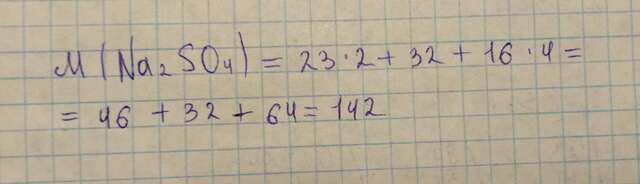 M(Na₂SO₄) = 23·2 + 32 + 16·4 =
= 46 + 32 + 64 = 142